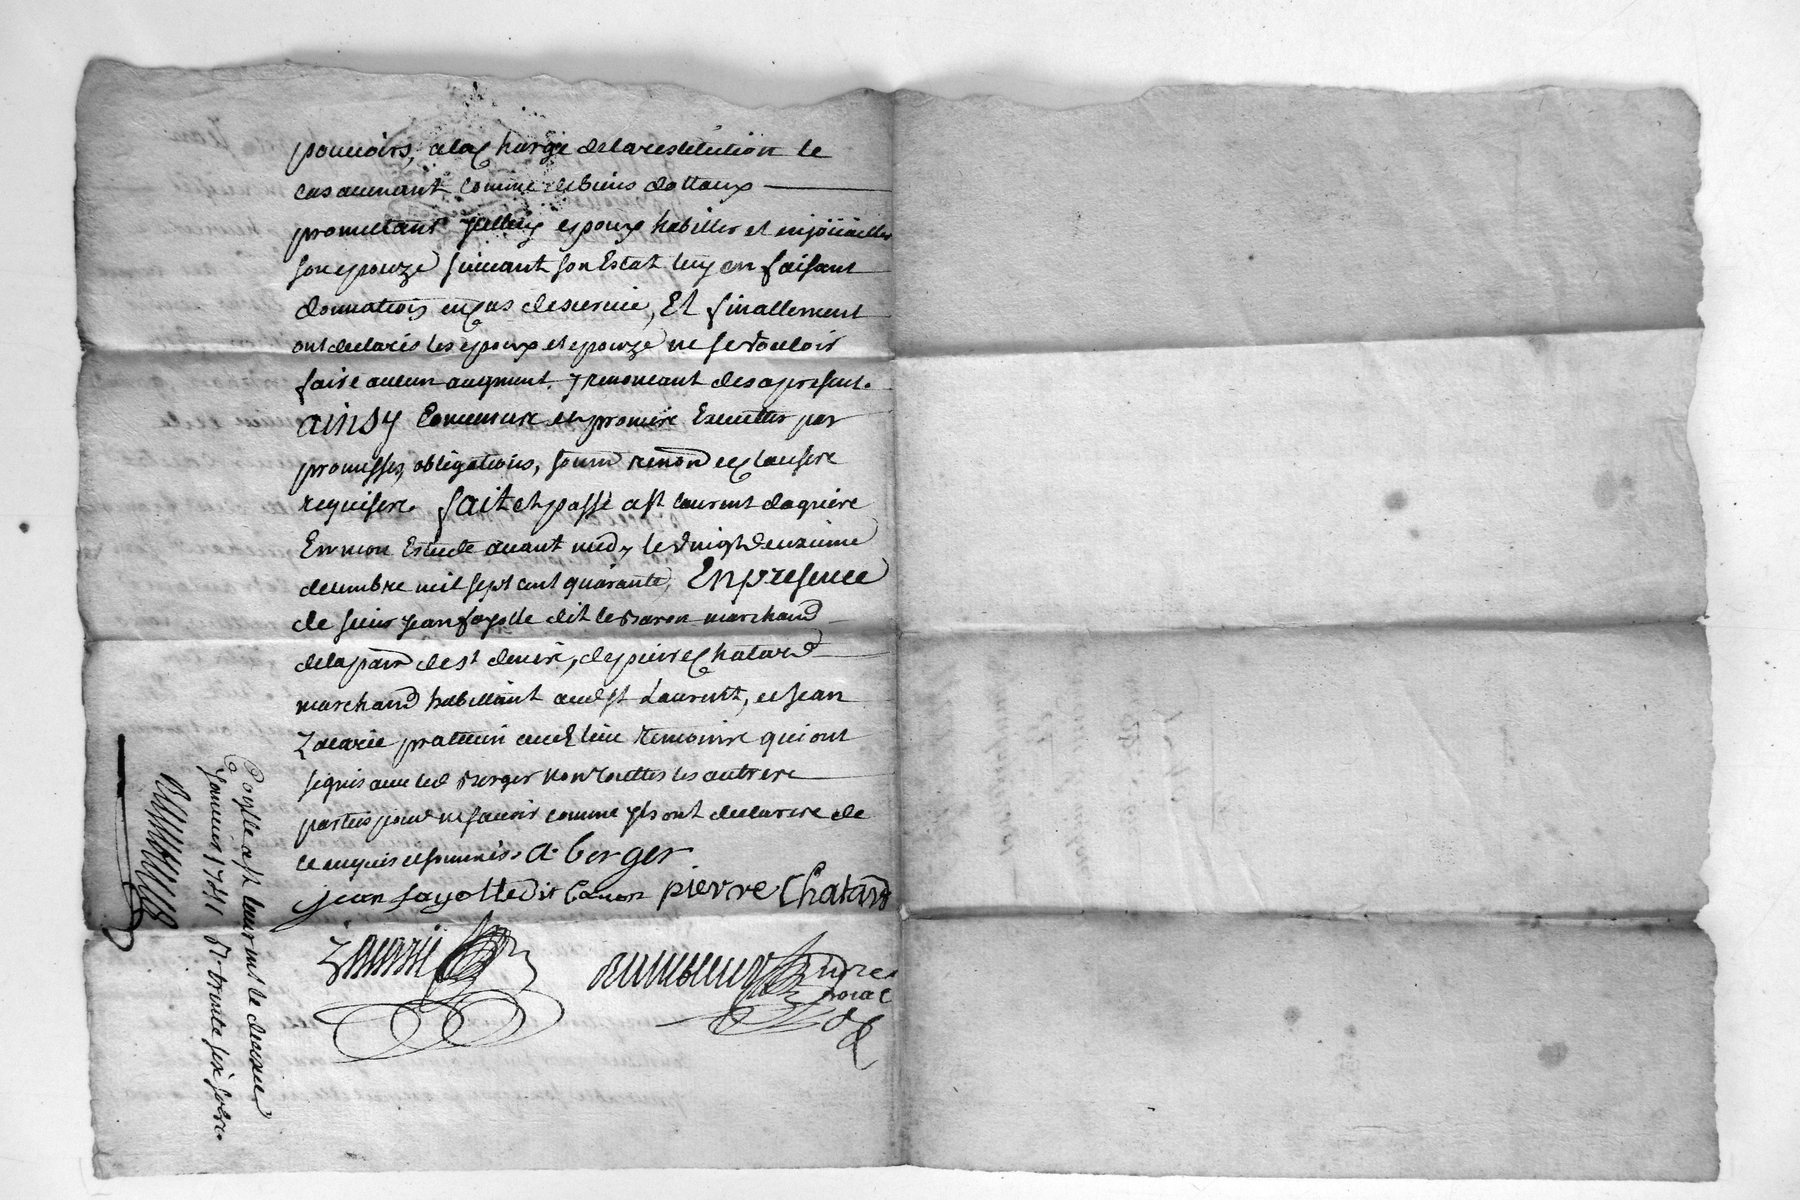 pouuoirs, a la charge de la restitution le
cas auenant comme de biens dottaux
promettant yelluy espoux habiller et enjoüailler
son epouze suiuant son Estat luy en faisant
donnation en cas de seruie, Et finallement
ont declarés les epoux et epouze ne se vouloir
faire aucun augment, y renoncant des apresent.
ainsy Conuenu et promire Executter par
promesses, obligations, soum renon et clausere
requisere. fait et passé a st laurent dagniere
En mon Estude auant midy le vingt deuxieme
decembre mil sept cent quarante, En presence
de sieur jean fayolle dit le Baron marchand
de la parr de st deuire, de pierre Chatard
marchand habittant aud st Laurentt, et jean
Zacarie pratticin aud lieu temoinre qui ont
signés auec led Berger non touttes les autrere
parties pour ne sauoir comme yls ont declarere de
ce enquis et sommés. a. berger
jean fayolle dit baron pierre Chatard
Zacarie
nore
roial
Coylle a st laurent le deuxie
januier 1741 Rt. trente six solre.